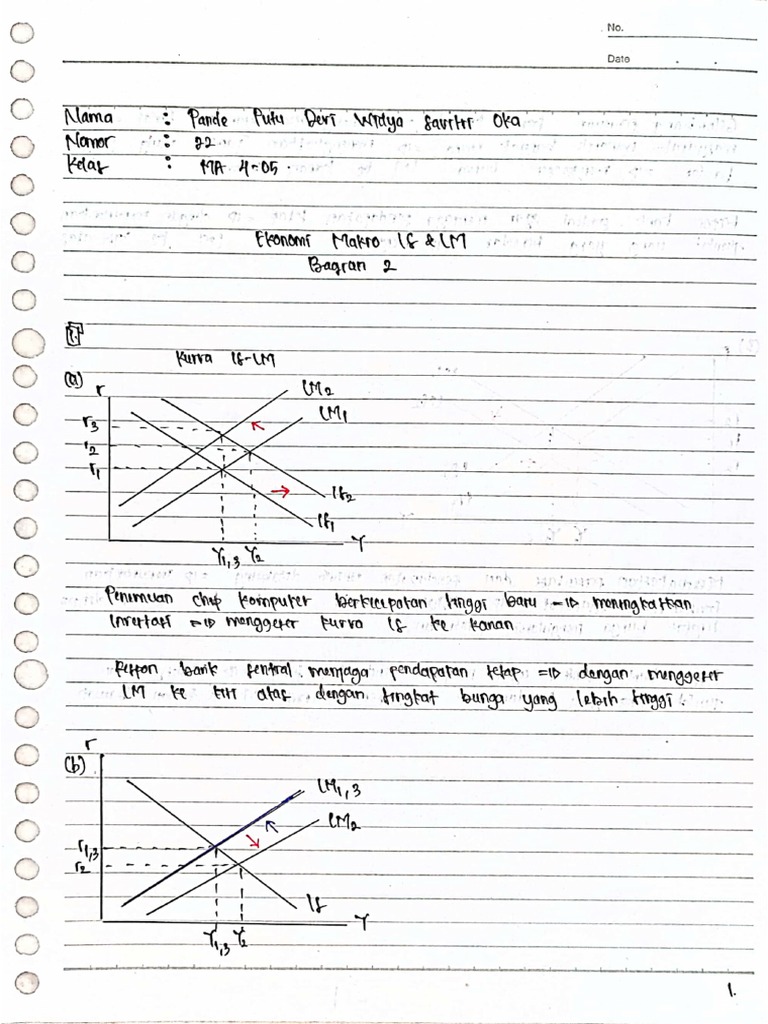 No.
Date . .
Nama : Pande Putu Devi Widya Savitri Oka
Nomor : 22
Kelas : MA 4-05.
Ekonomi Makro IS & LM
Bagian 2
1.
Kurva IS-LM
(a)
r
LM2
LM1
r3
r2
r1
IS2
IS1
Y
Y1,3 Y2
Penemuan chip komputer berkecepatan tinggi baru => meningkatkan
Investasi => menggeser kurva IS ke kanan
Respon bank sentral menjaga pendapatan tetap => dengan menggeser
LM ke kiri atas dengan tingkat bunga yang lebih tinggi.
r
(b)
LM1,3
LM2
r1,3
r2
IS
Y
Y1,3 Y2
1.